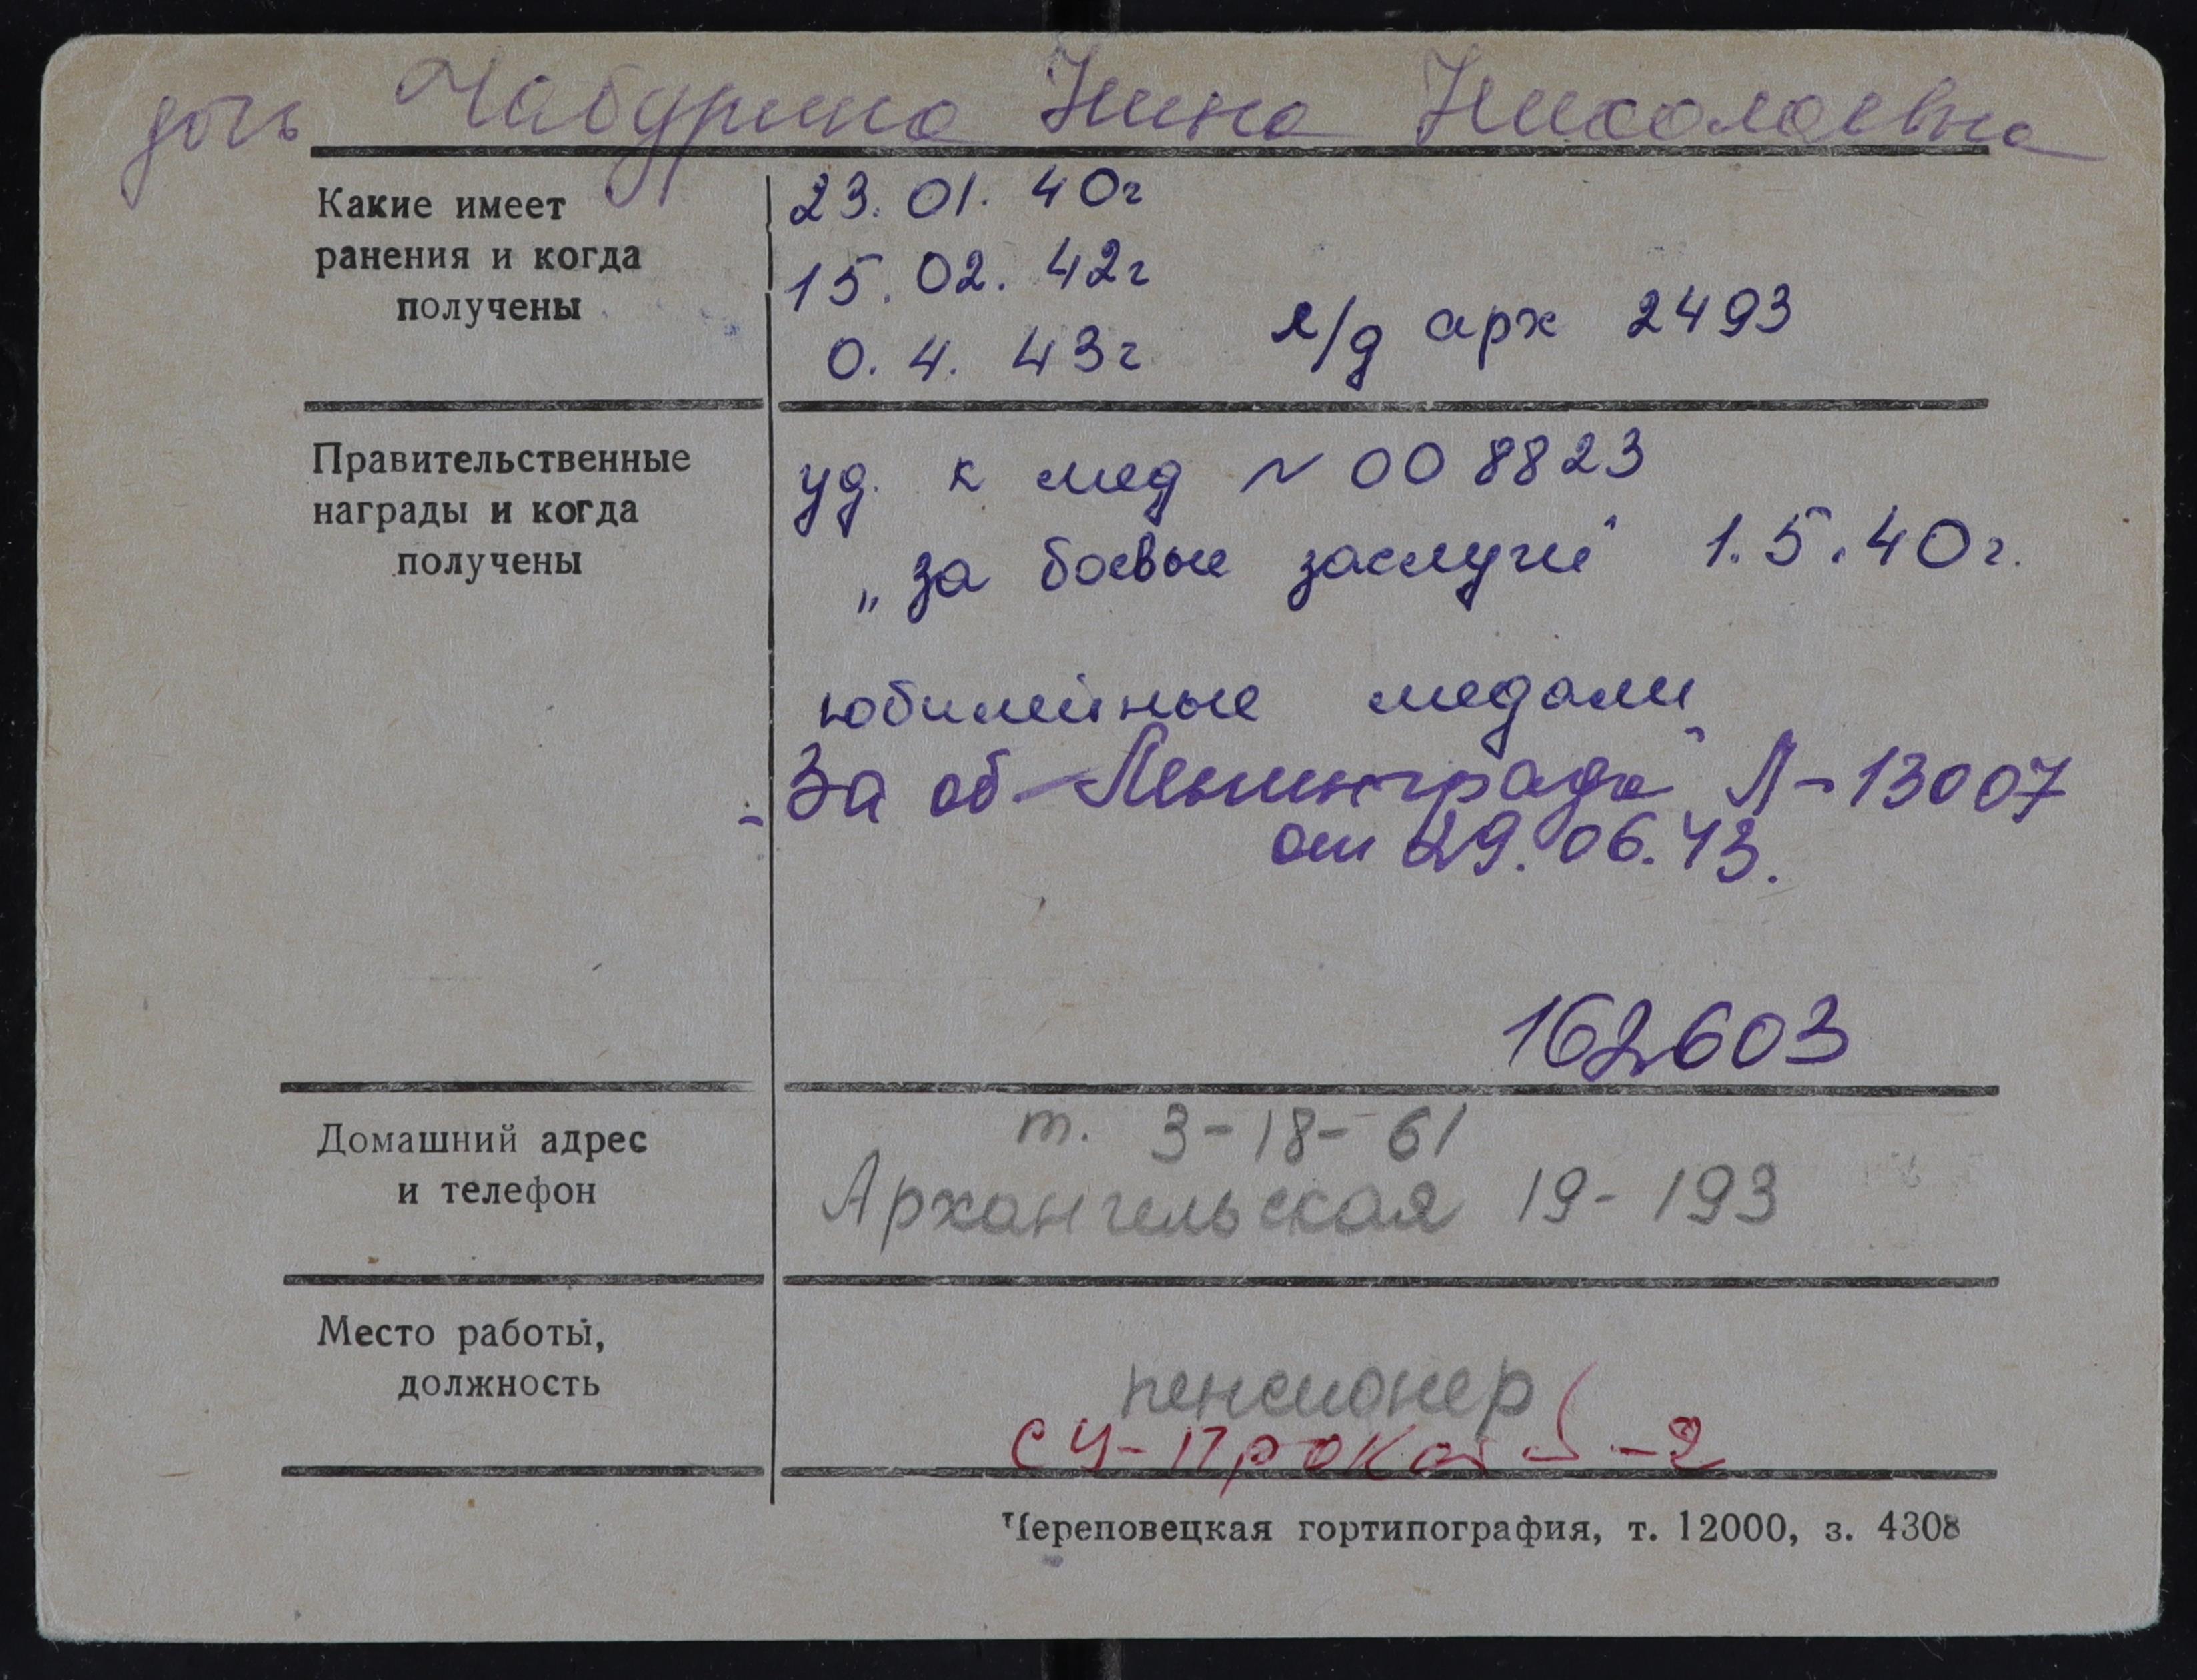 дочь Чабурина Нина Николаевна
Какие имеет
ранения и когда
получены
23. 01. 40г
15. 02. 42г
0. 4. 43г л/д арх 2493
Правительственные
награды и когда
получены
уд. к мед N 008823
„за боевые заслуги" 1.5.40г.
юбилейные медали
"За об-Ленинграда" Л-13007
от 29.06.43.
162603
Домашний адрес
и телефон
т. 3-18-61
Архангельская 19-193
Место работы,
должность
пенсионер
СЧ-Прокат -2
Череповецкая гортипография, т. 12000, з. 4308